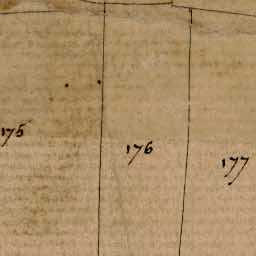 175
176
177